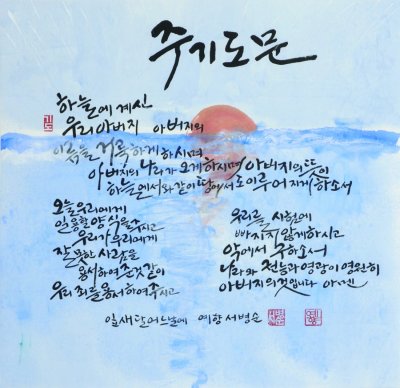 주기도문
하늘에 계신
우리 아버지 아버지의
이름을 거룩하게 하시며
아버지의 나라가 오게하시며 아버지의 뜻이
하늘에서와 같이 땅에서도 이루어지게 하소서
오늘 우리에게
일용할 양식을 주시고
우리가 우리에게
잘못한 사람을
용서하여 준것 같이
우리 죄를 용서하여 주시고
우리를 시험에
빠지지 않게 하시고
악에서 구하소서
나라와 권능과 영광이 영원히
아버지의 것입니다 아멘
잎새달 어느날에 예향 서병순